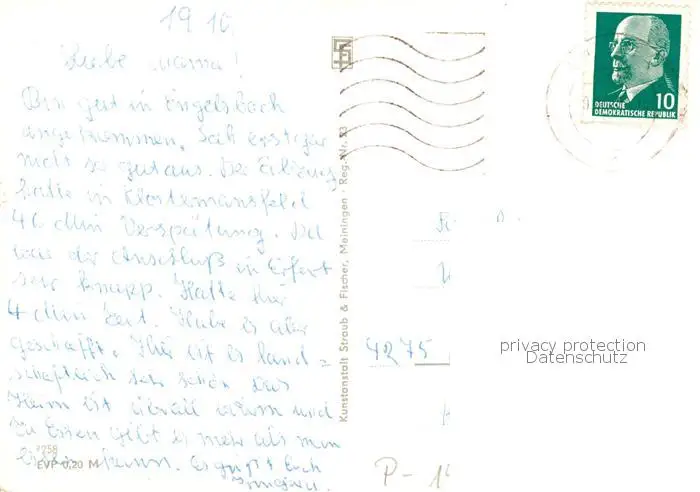 19.10.
Liebe Mama!
Bin gut in Engelsbach
angekommen. Sah erst gar
nicht so gut aus. Der Eilzug
hatte in Klostermansfeld
46 Min Verspätung. Da
war der Anschluß in Erfurt
sehr knapp. Hatte nur
4 Min Zeit. Habe es aber
geschafft. Hier ist es land=
schaftlich sehr schön. Das
Heim ist überall warm und
zu Essen gibt es mehr als man
kann. Es grüßt Euch
Irmgard.
P258
EVP 0,20 M
Kunstanstalt Straub & Fischer, Meiningen · Reg.-Nr. 23
DEUTSCHE
DEMOKRATISCHE REPUBLIK
10
4275
privacy protection
Datenschutz
P-14